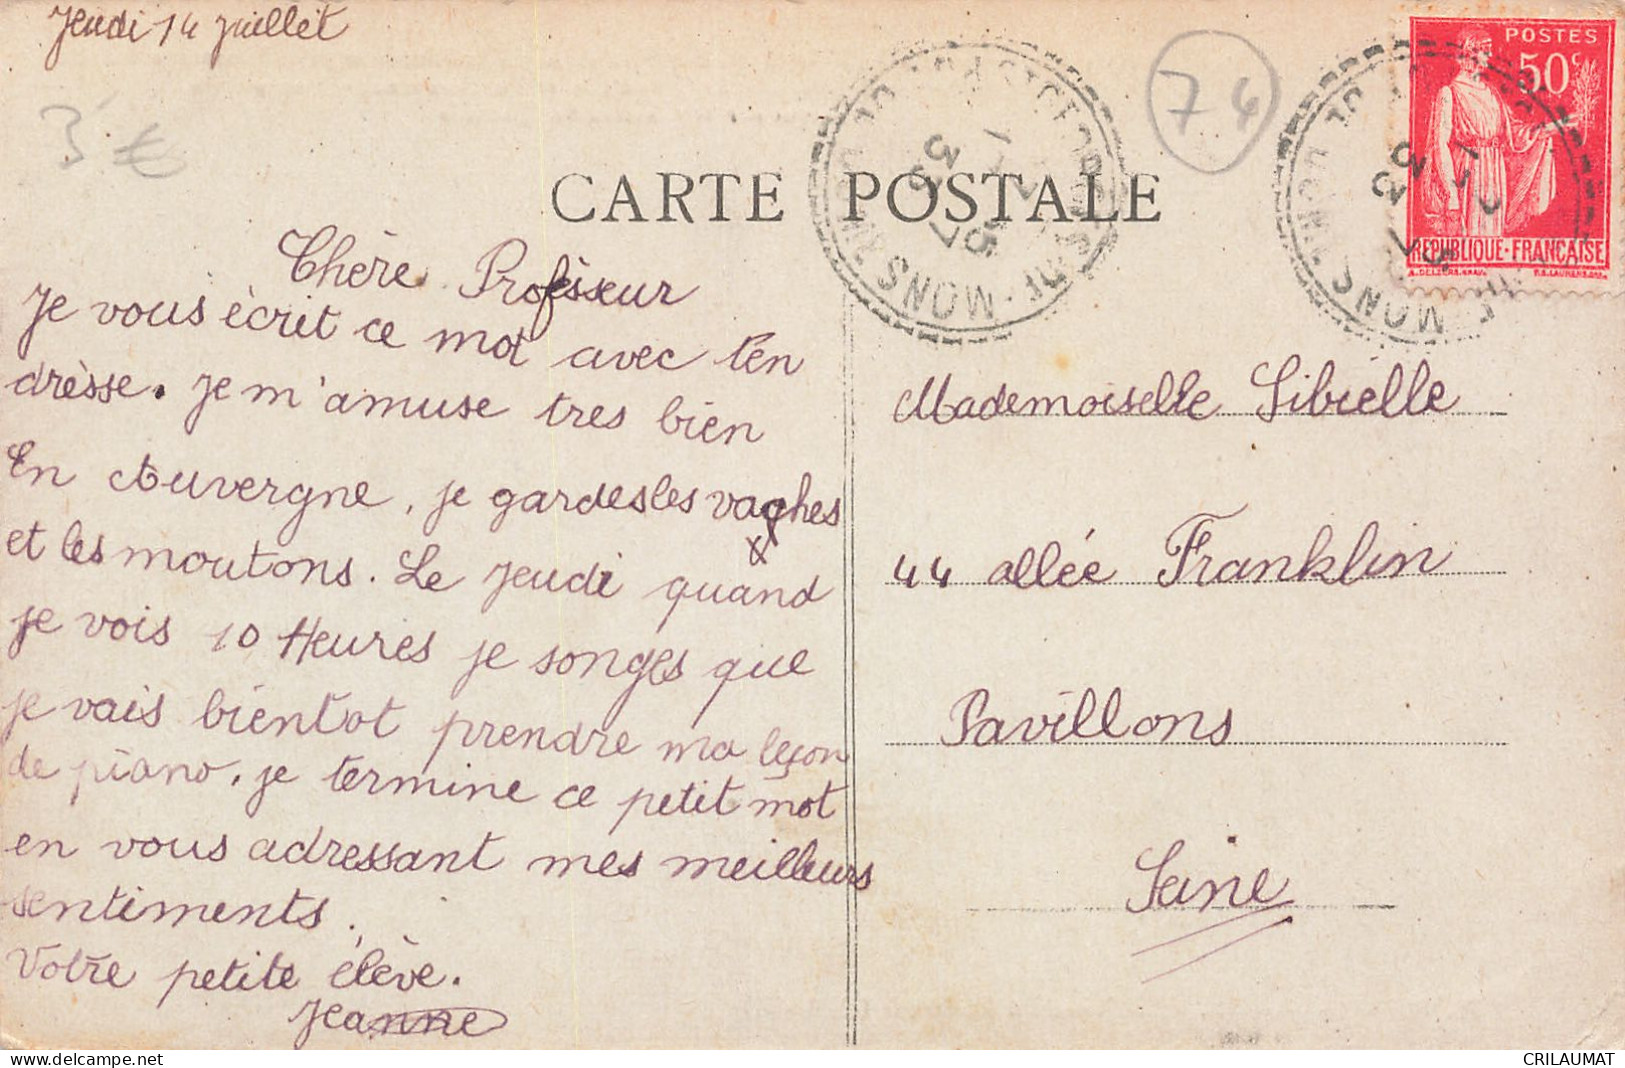 Jeudi 14 juillet
3 €
74
POSTES
50c
REPUBLIQUE-FRANÇAISE
CARTE POSTALE
MONS
Chère Professeur
Je vous écrit ce mot avec ten
drèsse. Je m'amuse tres bien
En Auvergne, je gardes les vaches
et les moutons. Le Jeudi quand
je vois 10 Heures je songes que
je vais bientot prendre ma leçon
de piano, je termine ce petit mot
en vous adressant mes meilleurs
sentiments.
Votre petite élève.
Jeanne
Mademoiselle Sibielle
44 allée Franklin
Pavillons
Seine
CRILAUMAT